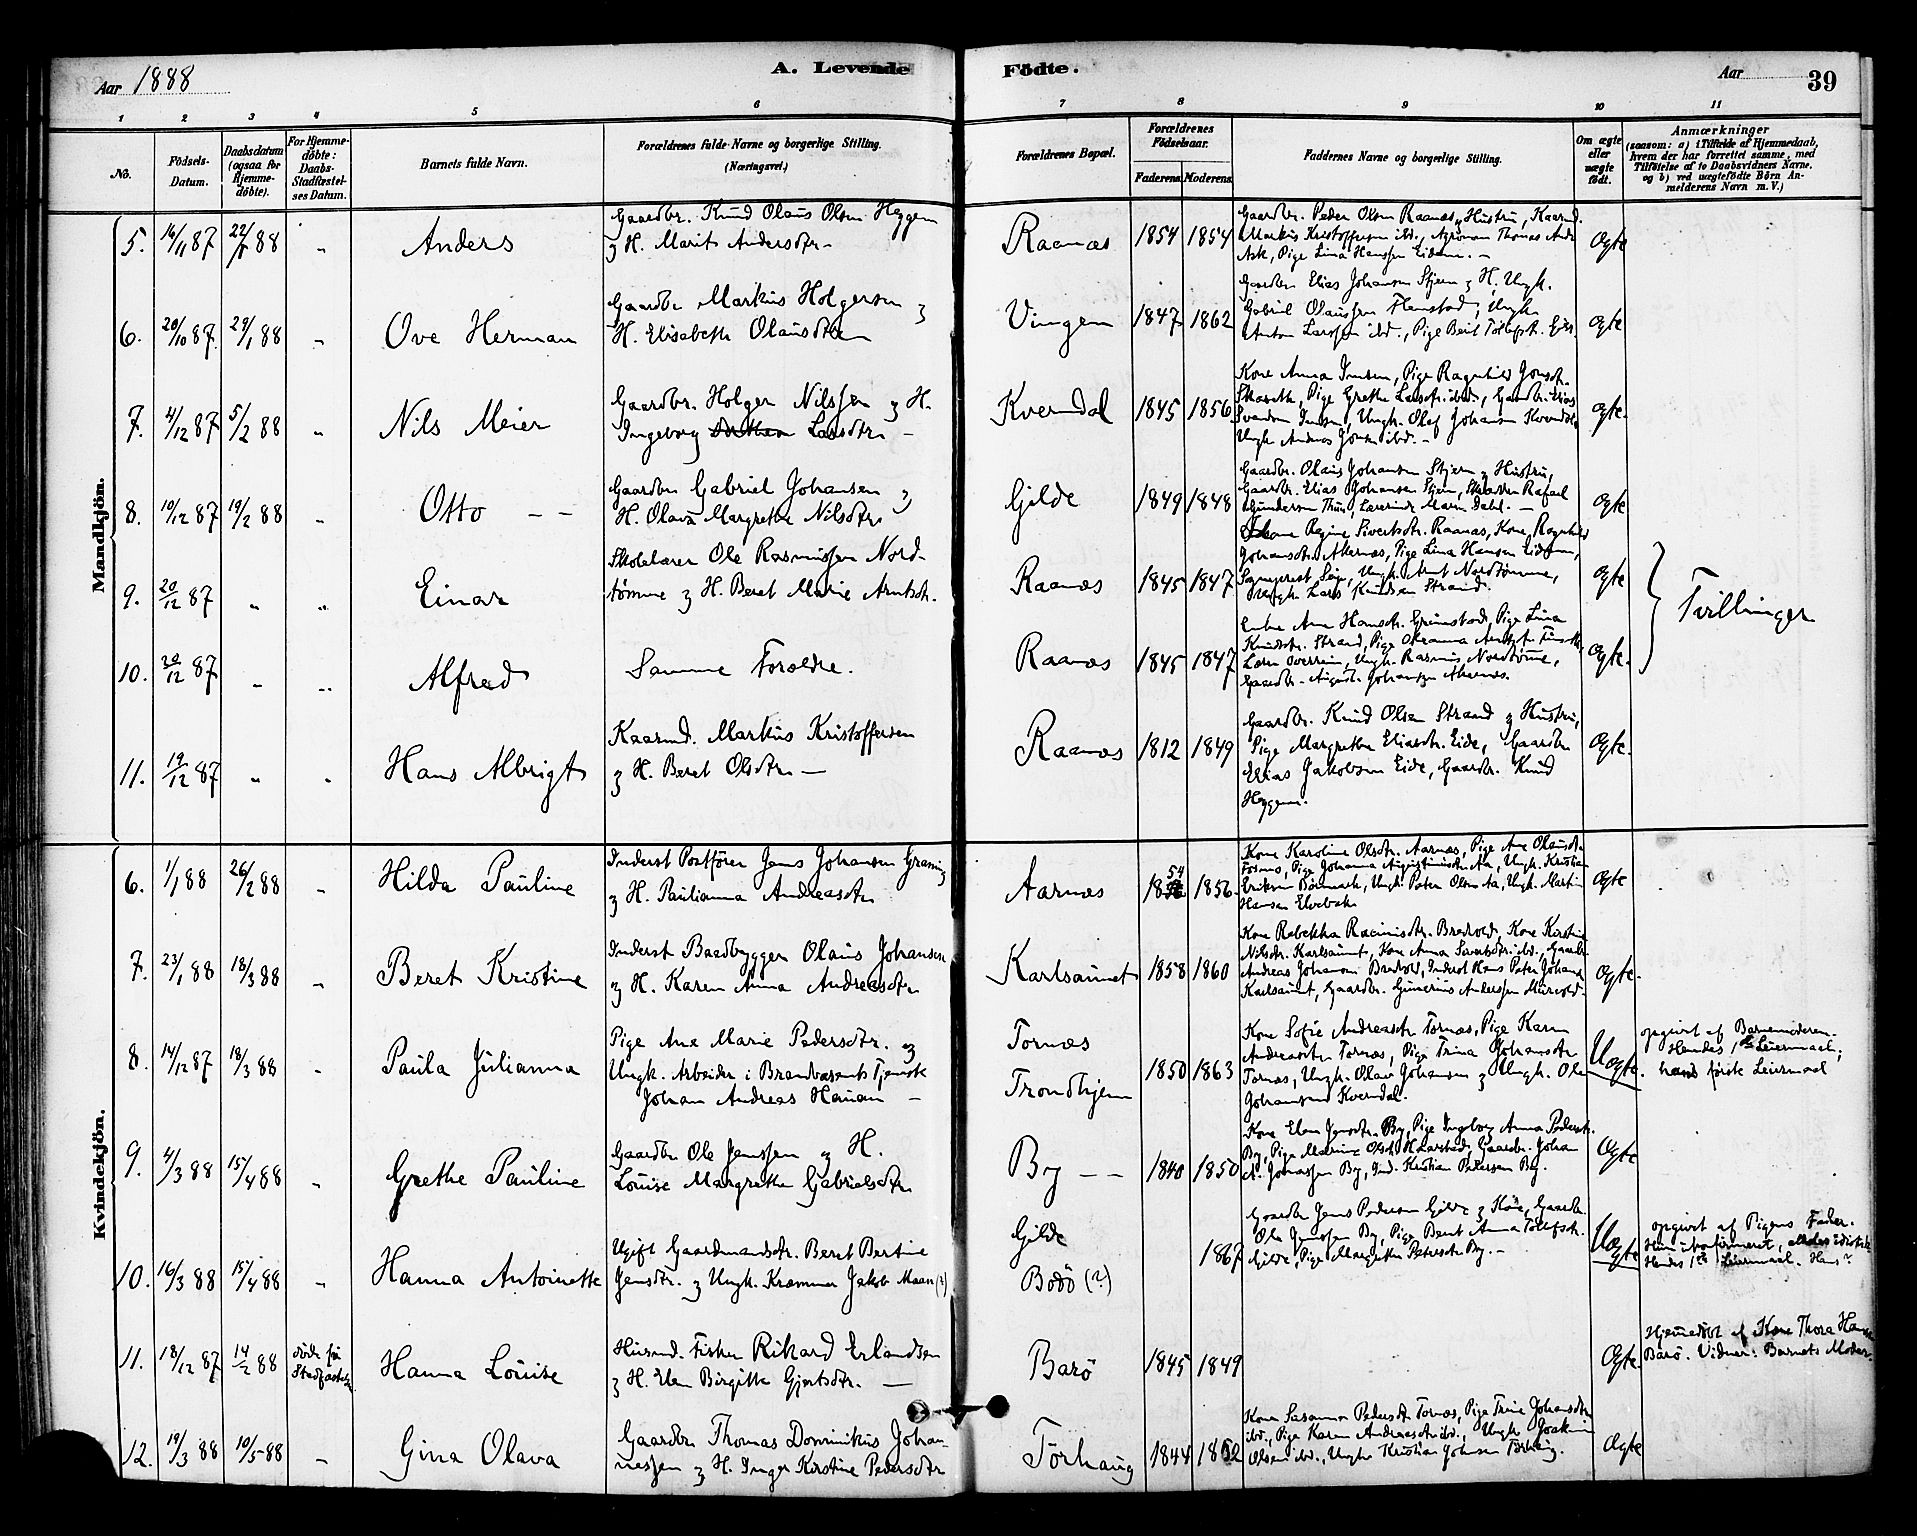 Aar 1888
A. Levende Födte.
Aar 39
1 2 3 4 5 6 7 8 9 10 11
No.
Födsels-Datum.
Daabsdatum (ogsaa for Hjemmedöbte).
For Hjemmedöbte: Daabs-Stadfæstelses Datum.
Barnets fulde Navn.
Forældrenes fulde Navne og borgerlige Stilling.
(Næringsvei.)
Forældrenes Bopæl.
Forældrenes Födselsaar.
Faderens. Moderens.
Faddernes Navne og borgerlige Stilling.
Om ægte eller uægte født.
Anmærkninger
(saasom: a) i Tilfælde af Hjemmedaab, hvem der har forrettet samme, med Tilföielse af to Daabsvidners Navne, og b) ved uægtefödte Börn Anmelderens Navn m. V.)
Mandkjön.
5. 16/11 87 22/1 88 " Anders
Gaardbr. Knud Olaus Olsen Heggem
og H. Marit Andersdtr.
Raanæs 1854 1854
Gaardbr. Peder Olsen Raanæs, Hustru, Kaarmd.
Markus Kristoffersen ibd., Agronom Thomas
Ask, Pige Lina Hanssen Eidem. –
Ægte
6. 20/10 87 29/1 88 " Ove Herman
Gaardbr Markus Holgersen og
H. Elisabeth Olausdtr
Vingen 1847 1862
Gaardbr Elias Johansen Stjern og H. Ungk.
Gabriel Olaussen Flenstad, Ungk.
Anton Larssen ibd., Pige Berit
Ægte
7. 4/12 87 5/2 88 " Nils Meier
Gaardbr. Holger Nilssen og H.
Ingeborg Larsdtr –
Kverndal 1845 1856
Kone Anna Imsen, Pige Ragnhild Jonsdtr.
Pige Grethe Larsdtr ibd., Gaardbr. Elias
Imsen, Ungk. Olaf Johansen Kverndal
Ungk. Andreas ibd. –
Ægte.
8. 10/12 87 19/2 88 " Otto – –
Gaardbr Gabriel Johansen og
H. Olava Margrethe Nilsdtr
Gilde 1849 1848
Gaardbr. Olaus Johansen Stjern og Hustru,
Gaardbr. Elias Johansen Stjern, Rafael
Gundersen Lærerinde Marn Dahl. –
Ægte
9. 20/12 87 " " Einar
Skolelærer Ole Rasmussen Nord-
tømme og H. Beret Marie Arntsdtr.
Raanæs 1845 1847
Kone Regine Sivertsdtr. Raanæs, Kone Ragnhild
Johansdtr. Akernæs, Pige Lina Hansen Eidem,
Ungk. Arnt Nordtømme,
Ungk. Lars Knudsen Strand.
Ægte
Tvillinger
10. 20/12 87 " " Alfred
Samme Forældre.
Raanæs 1845 1847
Enke Ane Hansdtr. Grimstad, Pige Lina
Knudsdtr. Strand, Pige
Ungk. Rasmus Nordtømme,
Gaardbr. August Johansen Akernæs.
Ægte.
11. 19/12 87 " " Hans Albrigt
Kaarmd. Markus Kristoffersen
og H. Beret Olsdtr. –
Raanæs 1812 1849
Gaardbr. Knud Olsen Strand og Hustru,
Pige Margrethe Eliasdtr. Eide, Gaardbr
Elias Jakobsen Eide, Gaardbr. Knud
Heggem.
Ægte.
Kvindekjön.
6. 1/1 88 26/2 88 " Hilda Pauline
Inderst Postfører Jens Johansen
og H. Paulianna Andreasdtr
Aarnæs 1854 1856.
Kone Karoline Olsdtr. Aarnæs, Pige Ane Olausdtr
Pige Johanna Augustinusdtr Aa, Ungk. Kristian
Eriksen Ungk. Peter Olsen Aa, Ungk. Martin
Hansen Elvebak
Ægte
7. 23/1 88 18/3 88 " Beret Kristine
Inderst Baadbygger Olaus Johansen
og H. Karen Anna Andreasdtr
Karlsaunet 1858 1860
Kone Rebekka Brevold, Kone Kirstine
Nilsdtr. Karlsaunet, Kone Anna ibd., Gaardbr.
Andreas Johansen Brevold, Inderst Hans Peter Johans.
Karlsaunet, Gaardbr. Gunerius Anderssen Murvold.
Ægte.
8. 14/12 87 18/3 88 " Paula Julianna
Pige Ane Marie Pedersdtr. og
Ungk. Arbeider i Brandvæsents Tjeneste
Johan Andreas Hanan –
Tornæs
Trondhjem
1850 1863
Kone Sofie Andreasdtr Tornæs, Pige Karen
Andreasdtr Tornæs, Pige Trina Johansdtr
Tornæs, Ungk. Olaus Johansen og Ungk. Ole
Johansen Kverndal.
Uægte.
opgivet af Barnemoderen.
Hendes 1ste Leiermaal;
hans første Leiermaal
9. 4/3 88 15/4 88 " Grethe Pauline
Gaardbr Ole Jenssen og H.
Louise Margrethe Gabrielsdtr
By – – 1840 1850
Kone Elen Jensdtr. By, Pige Ingeborg Anna Pedersdtr.
By, Pige Marine Olsdtr. Harstad, Gaardbr. Johan
A. Jonassen By, Ind. Kristian Pedersen By.
Ægte
10. 16/3 88 15/4 88 " Hanna Antoinette
Ugift Gaardmandsdtr. Beret Bertine
Jensdtr. og Ungk. Kræmmer Jakob Maan (?)
Gilde
Bodö (?)
1867
Gaardbr Jens Pedersen Gilde og Kone, Gaardbr.
Ole Jenssen By, Pige Berit Anna
Gilde, Pige Margrethe Petersdtr By. –
Uægte
opgivet af Pigens Fader.
Hun ukonfirmeret,
Hendes 1ste Leiermaal. Hans?
11. 18/12 87 14/2 88 döde før Stadfæstelse Hanna Louise
Husmd. Fisker Rikard Erlandsen
og H. Elen Birgitte Gjertsdtr. –
Barö 1845 1849
Ægte
Hjemmedöbt af Kone Thora Hansen
Barö. Vidner: Barnets Moder.
12. 19/3 88 10/5 88 " Gina Olava
Gaardbr Thomas Dominikus Johan-
nessen og H. Inger Kirstine Pedersdtr
Torhaug 1844 1852
Kone Susanna Pedersdtr Tornæs, Pige Trine Johansdtr
ibd., Pige Karen Andreasdtr ibd., Ungk Joakim
Olsen ibd., Ungk Kristian Johnsen Torhaug.
Ægte